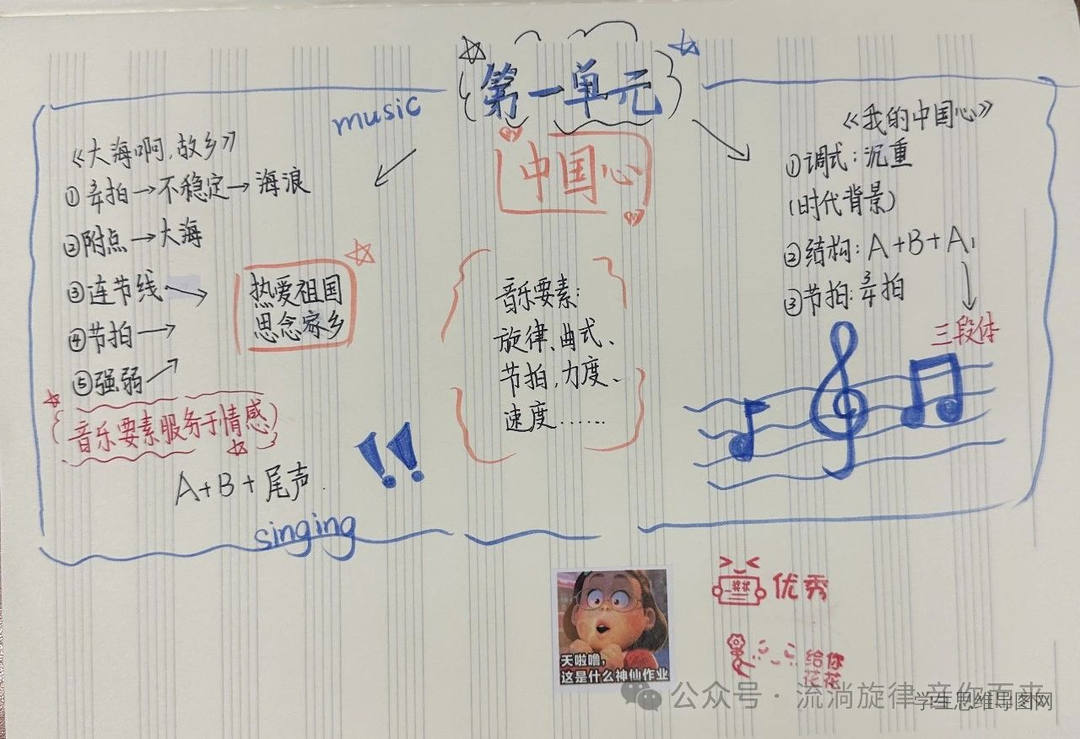 第一单元
music
中国心
《大海啊,故乡》
①弄拍→不稳定→海浪
②附点→大海
③连节线→
④节拍→
⑤强弱→
热爱祖国
思念家乡
音乐要素服务于情感
A+B+尾声.
singing
音乐要素:
旋律、曲式、
节拍、力度、
速度……
《我的中国心》
①调式:沉重
(时代背景)
②结构:A+B+A₁
三段体
③节拍: 拍
天啦噜,
这是什么神仙作业
优秀
给你
花花
公众号·流淌旋律 音你而来
学生思维导图网